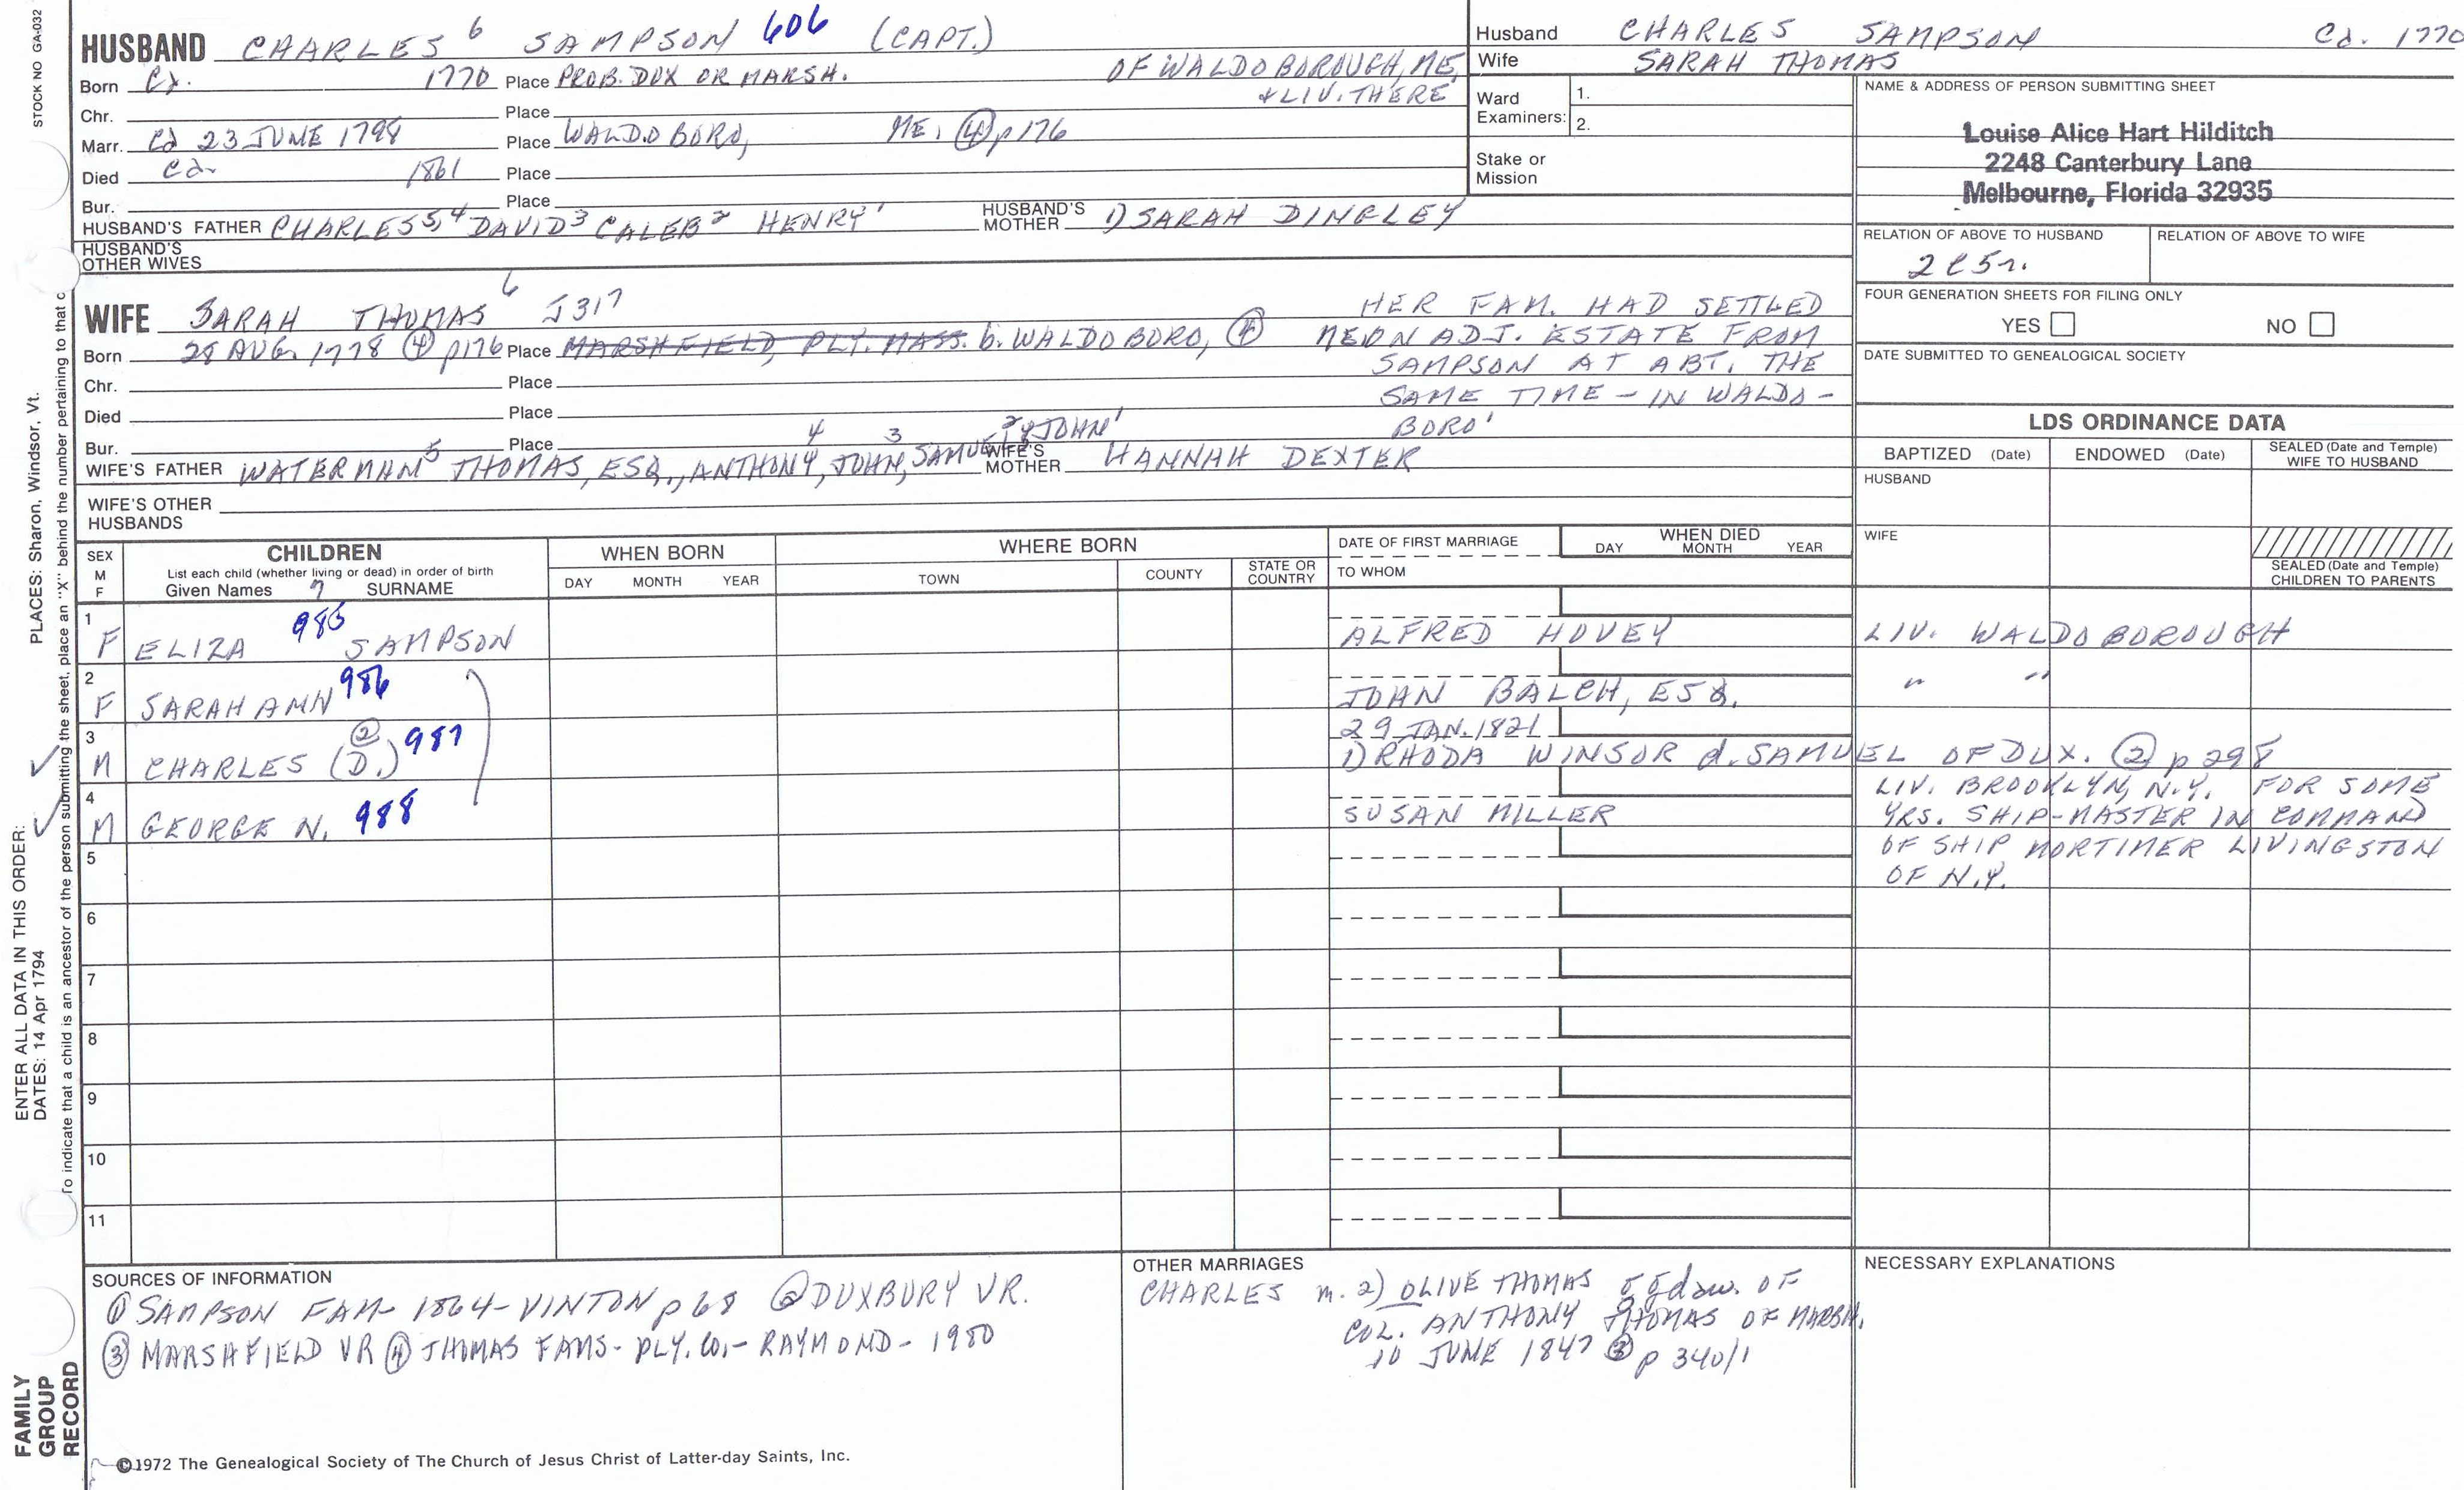 STOCK NO GA-032
HUSBAND CHARLES 6 SAMPSON 606 (CAPT.)
Born Ca. 1770 Place PROB. DUX OR MARSH. OF WALDOBOROUGH, ME,
& LIV. THERE
Chr. Place
Marr. Ca 23 JUNE 1798 Place WALDOBORO, ME. ④ p176
Died Ca 1861 Place
Bur. Place
HUSBAND'S FATHER CHARLES 5, 4 DAVID 3 CALEB 2 HENRY 1 HUSBAND'S MOTHER 1) SARAH DINGLEY
HUSBAND'S OTHER WIVES
Husband CHARLES SAMPSON Ca. 1770
Wife SARAH THOMAS
Ward Examiners: 1.
2.
Stake or Mission
NAME & ADDRESS OF PERSON SUBMITTING SHEET
Louise Alice Hart Hilditch
2248 Canterbury Lane
Melbourne, Florida 32935
RELATION OF ABOVE TO HUSBAND RELATION OF ABOVE TO WIFE
2C5r.
FOUR GENERATION SHEETS FOR FILING ONLY
YES NO
DATE SUBMITTED TO GENEALOGICAL SOCIETY
WIFE SARAH THOMAS 6 J317
Born 28 AUG. 1778 ④ p176 Place MARSHFIELD, PLY. MASS. b. WALDOBORO, ④
Chr. Place
Died Place
Bur. Place
HER FAM. HAD SETTLED
ADJ. ESTATE FROM
SAMPSON AT ABT. THE
SAME TIME - IN WALDO-
BORO'
WIFE'S FATHER WATERMAN 5 THOMAS, ESQ., ANTHONY 4, JOHN 3, SAMUEL 2 JOHN 1 WIFE'S MOTHER HANNAH DEXTER
WIFE'S OTHER HUSBANDS
LDS ORDINANCE DATA
BAPTIZED (Date) ENDOWED (Date) SEALED (Date and Temple) WIFE TO HUSBAND
HUSBAND
WIFE
SEALED (Date and Temple) CHILDREN TO PARENTS
SEX M F CHILDREN WHEN BORN WHERE BORN DATE OF FIRST MARRIAGE WHEN DIED
List each child (whether living or dead) in order of birth
Given Names 7 SURNAME DAY MONTH YEAR TOWN COUNTY STATE OR COUNTRY TO WHOM DAY MONTH YEAR
1 F ELIZA 985 SAMPSON ALFRED HOVEY LIV. WALDOBOROUGH
2 F SARAH ANN 986 JOHN BALCH, ESQ. " "
29 JAN. 1821
3 M CHARLES (D.) ② 987 1) RHODA WINSOR d. SAMUEL OF DUX. ② p 298
4 M GEORGE N. 988 SUSAN MILLER LIV. BROOKLYN, N.Y. FOR SOME
YRS. SHIP-MASTER IN COMMAND
OF SHIP MORTIMER LIVINGSTON
OF N.Y.
5
6
7
8
9
10
11
SOURCES OF INFORMATION
① SAMPSON FAM- 1864- VINTON p68 ② DUXBURY VR.
③ MARSHFIELD VR ④ THOMAS FAMS- PLY. CO.- RAYMOND- 1980
OTHER MARRIAGES
CHARLES m. 2) OLIVE THOMAS OF
COL. ANTHONY THOMAS OF MARSH.
10 JUNE 1847 ③ p 340/1
NECESSARY EXPLANATIONS
©1972 The Genealogical Society of The Church of Jesus Christ of Latter-day Saints, Inc.
FAMILY GROUP RECORD
ENTER ALL DATA IN THIS ORDER:
DATES: 14 Apr 1794
PLACES: Sharon, Windsor, Vt.
To indicate that a child is an ancestor of the person submitting the sheet, place an "X" behind the number pertaining to that c